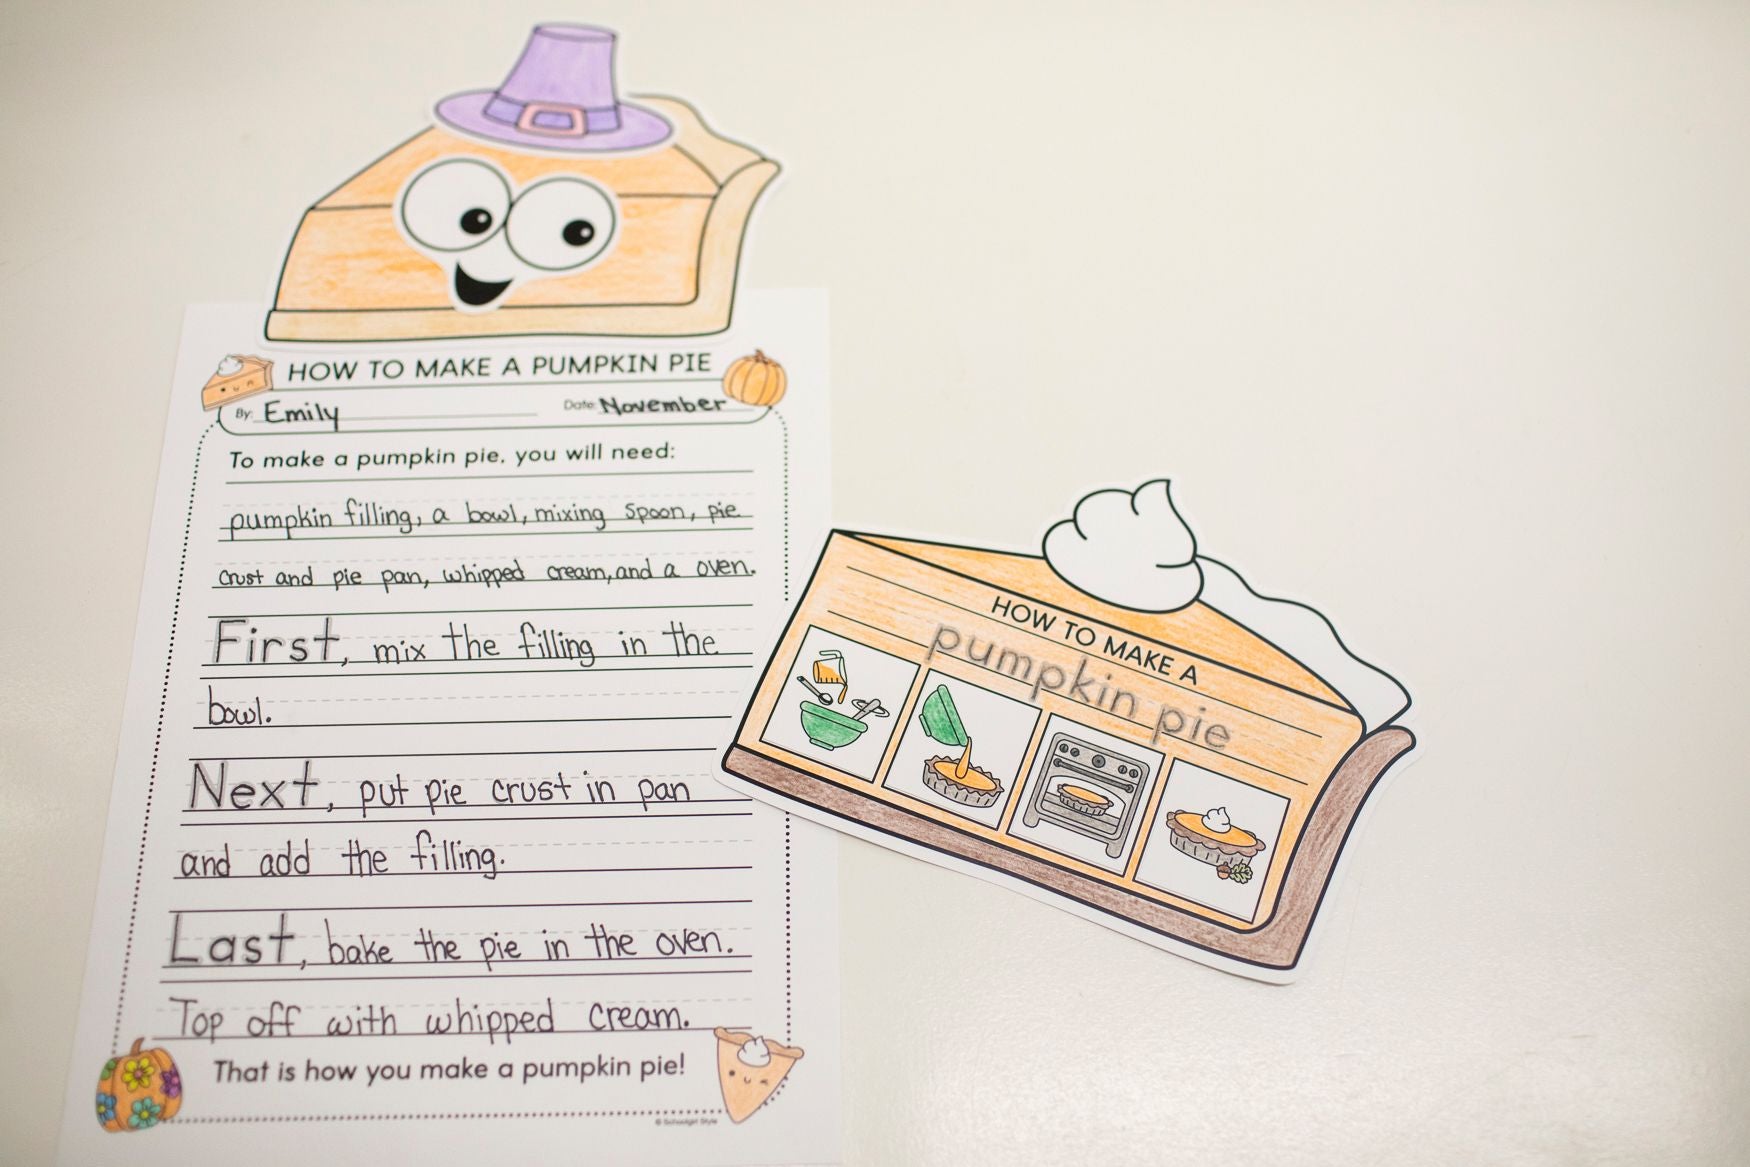 HOW TO MAKE A PUMPKIN PIE
By: Emily Date: November
To make a pumpkin pie, you will need:
pumpkin filling, a bowl, mixing spoon, pie
crust and pie pan, whipped cream, and a oven.
First, mix the filling in the
bowl.
Next, put pie crust in pan
and add the filling.
Last, bake the pie in the oven.
Top off with whipped cream.
That is how you make a pumpkin pie!
© Schoolgirl Style
HOW TO MAKE A
pumpkin pie